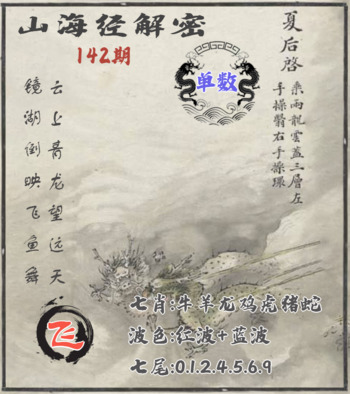 山海经解密
142期
夏后启
乘兩龍雲蓋三層左
手操翳右手操環
单数
云上青龙望远天.
镜湖倒映飞鱼舞
飞
七肖:牛羊龙鸡虎猪蛇
波色:红波+蓝波
七尾:0.1.2.4.5.6.9